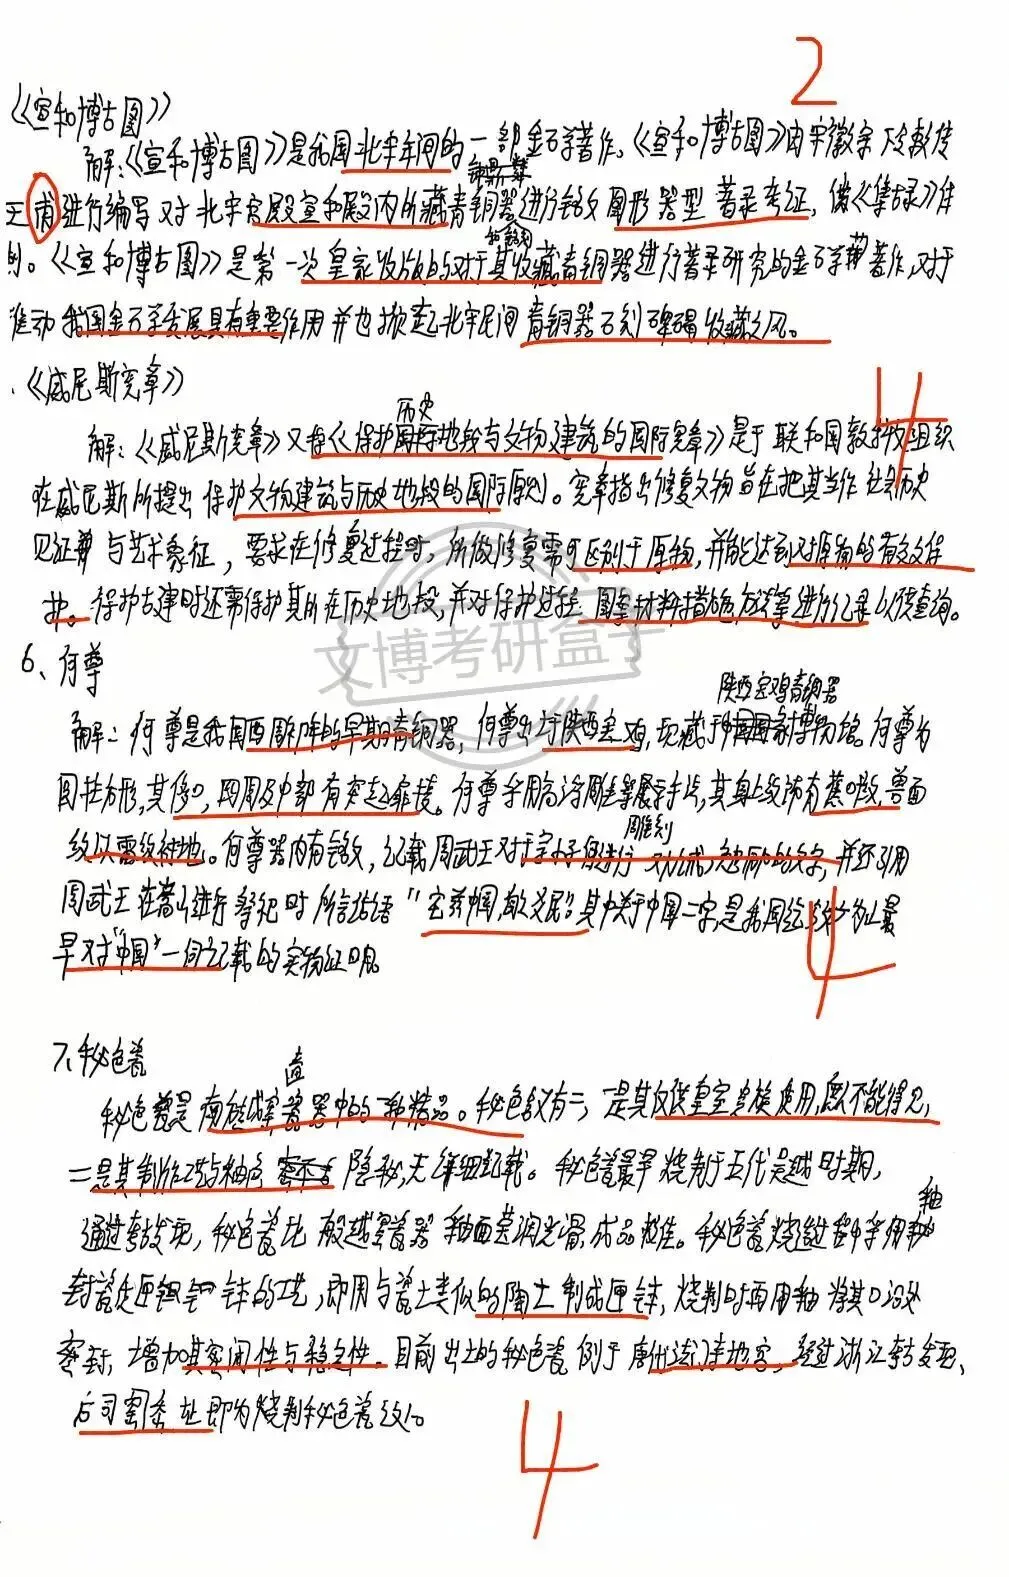 2
《宣和博古图》
解:《宣和博古图》是我国北宋年间的一部金石学著作,《宣和博古图》由宋徽宗下令教传
王甫进行编写 对北宋宫殿宣和殿内所藏青铜器进行铭文 图形 器型 著录考证, 《集古录》体
例。《宣和博古图》是第一次皇家 对于其收藏青铜器和 进行著录研究的金石学著作,对于
推动我国金石学发展具有重要作用 并也掀起北宋民间青铜器 石刻碑碣收藏之风。
《威尼斯宪章》
4
解:《威尼斯宪章》又称《保护历史地段与文物建筑的国际宪章》是于联合国教科文组织
在威尼斯所提出 保护文物建筑与历史地段的国际原则。宪章指出修复文物旨在把其当作社会历史
见证 与艺术象征,要求在修复过程时,所做修复需可区别于原物,并能达到对原物的有效
护。保护古建时还需保护其所在历史地段,并对保护过程 图案材料措施方法等进行记录以供查询。
文博考研盒子
6、何尊
解:何尊是我国西周 的早期青铜器,何尊出于陕西宝鸡,现藏于陕西宝鸡青铜器博物馆。何尊为
圆柱方形,其侈口,四周及中部有突起扉棱。何尊采用高浮雕等展示手法,其身上纹饰有蕉叶纹,兽面
纹以雷纹衬地。何尊器内有铭文,记载周武王对于宗小子 进行 的文字,并还引用
周武王在嵩山进行祭祀时所言话语“宅兹中国,自之乂民”。其中关于中国二字,是我国 为止最
早对“中国”一词记载的实物证明。
4
7、秘色瓷
秘色瓷是南越 窑瓷器中的一种精品。秘色含义有二,一是其仅供皇室贵族使用,庶人不能得见,
二是其制作工艺与釉色 隐秘,无详细记载。秘色瓷最早烧制于五代吴越时期,
通过考古发现,秘色瓷比一般越窑瓷器釉面莹润光滑,成品极佳。秘色瓷烧造过程中采用釉
封瓷质匣钵的工艺,即用与瓷土类似的陶土制成匣钵,烧制时再用釉将其口沿处
密封,增加其密闭性与稳定性。目前出土的秘色瓷例于唐代法门寺地宫,经过浙江考古发现,
后司岙窑址即为烧制秘色瓷
4